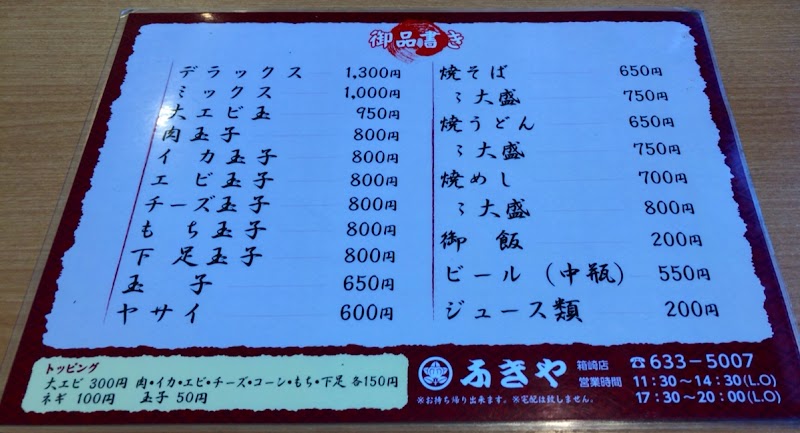 御品書き
デラックス 1,300円
ミックス 1,000円
大エビ玉 950円
肉玉子 800円
イカ玉子 800円
エビ玉子 800円
チーズ玉子 800円
もち玉子 800円
下足玉子 800円
玉子 650円
ヤサイ 600円
焼そば 650円
〃大盛 750円
焼うどん 650円
〃大盛 750円
焼めし 700円
〃大盛 800円
御飯 200円
ビール(中瓶) 550円
ジュース類 200円
トッピング
大エビ 300円 肉・イカ・エビ・チーズ・コーン・もち・下足 各150円
ネギ 100円 玉子 50円
ふきや 箱崎店 ☎633-5007
営業時間 11:30〜14:30(L.O)
17:30〜20:00(L.O)
※お持ち帰り出来ます。※宅配は致しません。